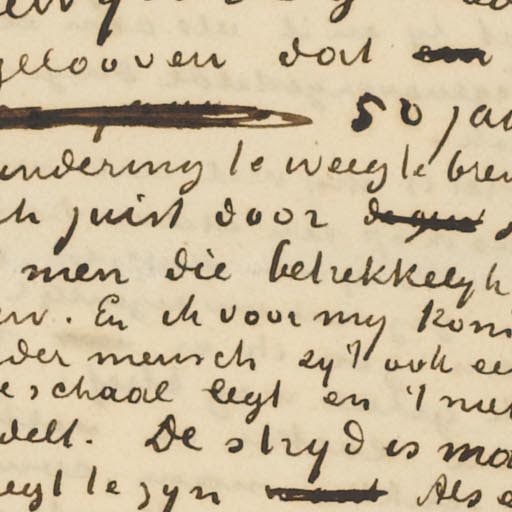 gelooven dat een
50 jaa
andering te weeg te bren
ch juist door
men die betrekkelyk
en. En ik voor my kom
der mensch zy't ook ee
e schaal legt en 't niet
delt. De stryd is mo
te zyn want Als